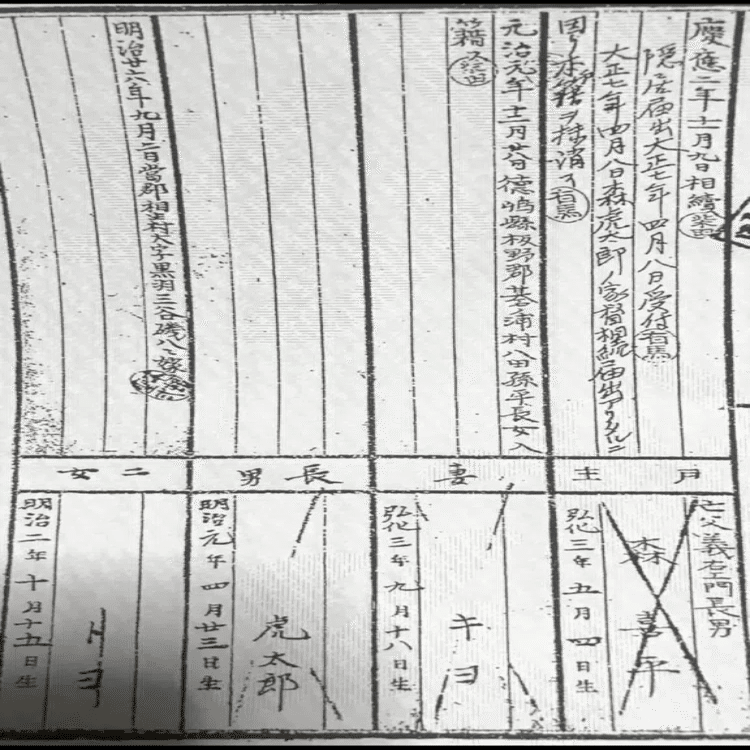 慶應二年十一月九日相續
隠居届出大正七年四月八日受付有馬
大正七年四月八日森虎太郎ノ家督相続届出アリタルニ
因リ本籍ヲ抹消ス有馬
元治元年十二月廿八日徳嶋縣板野郡基浦村八田孫平長女入
籍ス
明治廿六年九月二日當郡相生村大字黒羽三谷磯八ヘ嫁
主 月
妻
男 長
女 二
亡父義右エ門長男
森 喜平
弘化三年五月四日生
キヨ
弘化三年九月十八日生
虎太郎
明治元年四月廿三日生
トヨ
明治二年十月十五日生